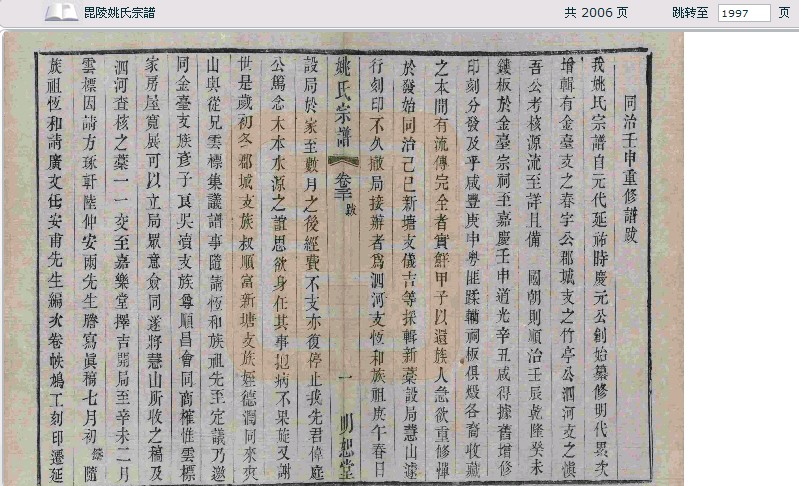 毘陵姚氏宗譜
共 2006 页
跳转至 1997 页
同治壬申重修譜跋
我姚氏宗譜自元代延祐時慶元公創始纂修明代累次
增輯有金臺支之春宇公郡城支之竹亭公泗河支之慎
吾公考核源流至詳且備 國朝則順治壬辰乾隆癸未
鋟板於金臺宗祠至嘉慶壬申道光辛丑咸得據舊增修
印刻分發及乎咸豐庚申粵匪蹂躪祠板俱燬各裔收藏
之本間有流傳完全者實鮮甲子以還族人急欲重修憚
於發始同治己巳新塘支儀吉等採輯新藁設局慧山遽
行刻印不久撤局接辦者爲泗河支恆和族祖庚午春日
姚氏宗譜 卷三 跋 一 明恕堂
設局於家至數月之後經費不支亦復停止我先君倬庭
公篤念木本水源之誼思欲身任其事抱病不果旋又謝
世是歲初冬郡城支族叔順富新塘支族姪德潤同來爽
山與從兄雲標集議譜事隨請恆和族祖先至定議乃邀
同金臺支族彥子良吳瀆支族尊順昌會同商榷惟雲標
家房屋寬展可以立局眾意僉同遂將慧山所收之稿及
泗河查核之藁一一交至嘉樂堂擇吉開局至辛未二月
雲標因請方琢軒陸仲安兩先生謄寫眞稿七月初 隨
族祖恆和請廣文任安甫先生編次卷帙鳩工刻印遷延